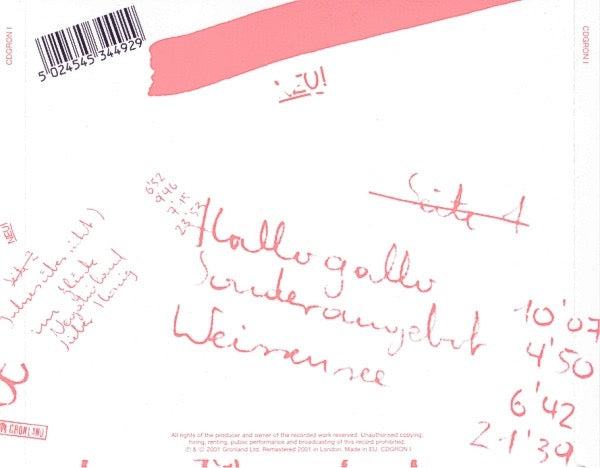 CDGRON I
5 024545 344929
NEU!
CDGRON I
Seite 1
6'52
9'46
7'15
23'53
Hallogallo
Sonderangebot
Weissensee
10'07
4'50
6'42
21'39
NEU!
Seite 2
im Glück
Negativland
Lieber Honig
GRÖNLAND
All rights of the producer and owner of the recorded work reserved. Unauthorized copying,
hiring, renting, public performance and broadcasting of this record prohibited.
℗ & © 2001 Gronland Ltd. Remastered 2001 in London. Made in EU. CDGRON I